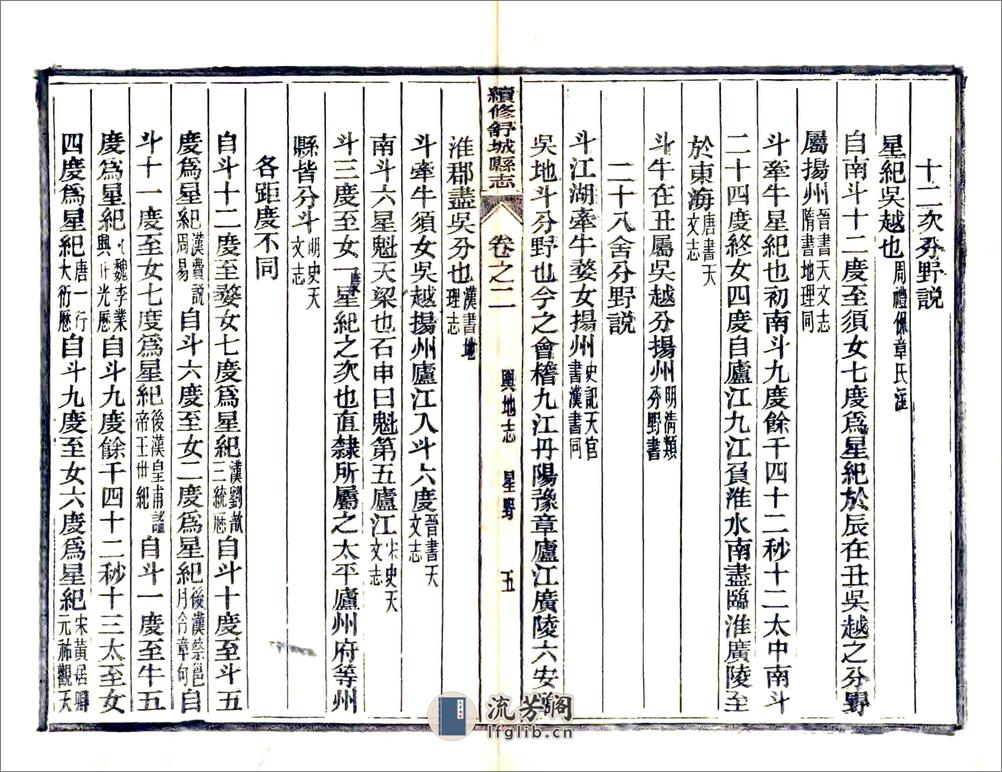 十二次分野說
星紀吳越也周禮保章氏注
自南斗十二度至須女七度爲星紀於辰在丑吳越之分野
屬揚州晉書天文志隋書地理同
斗牽牛星紀也初南斗九度餘千四十二秒十二太中南斗
二十四度終女四度自廬江九江負淮水南盡臨淮廣陵至
於東海唐書天文志
斗牛在丑屬吳越分揚州明清類分野書
二十八舍分野說
斗江湖牽牛婺女揚州史記天官書漢書同
吳地斗分野也今之會稽九江丹陽豫章廬江廣陵六安臨
續修舒城縣志
卷之二
輿地志
星野
五
淮郡盡吳分也漢書地理志
斗牽牛須女吳越揚州廬江入斗六度晉書天文志
南斗六星魁天梁也石申曰魁第五廬江宋史天文志
斗三度至女一度星紀之次也直隸所屬之太平廬州府等州
縣皆分斗明史天文志
各距度不同
自斗十二度至婺女七度爲星紀漢劉歆三統曆自斗十度至斗五
度爲星紀漢費說周易自斗六度至女二度爲星紀後漢蔡邕月令章句自
斗十一度至女七度爲星紀後漢皇甫謐帝王世紀自斗一度至牛五
度爲星紀魏李業興光曆自斗九度餘千四十二秒十三太至女
四度爲星紀唐一行大衍曆自斗九度至女六度爲星紀宋黃居卿元祐觀天
流芳阁
lfglib.cn